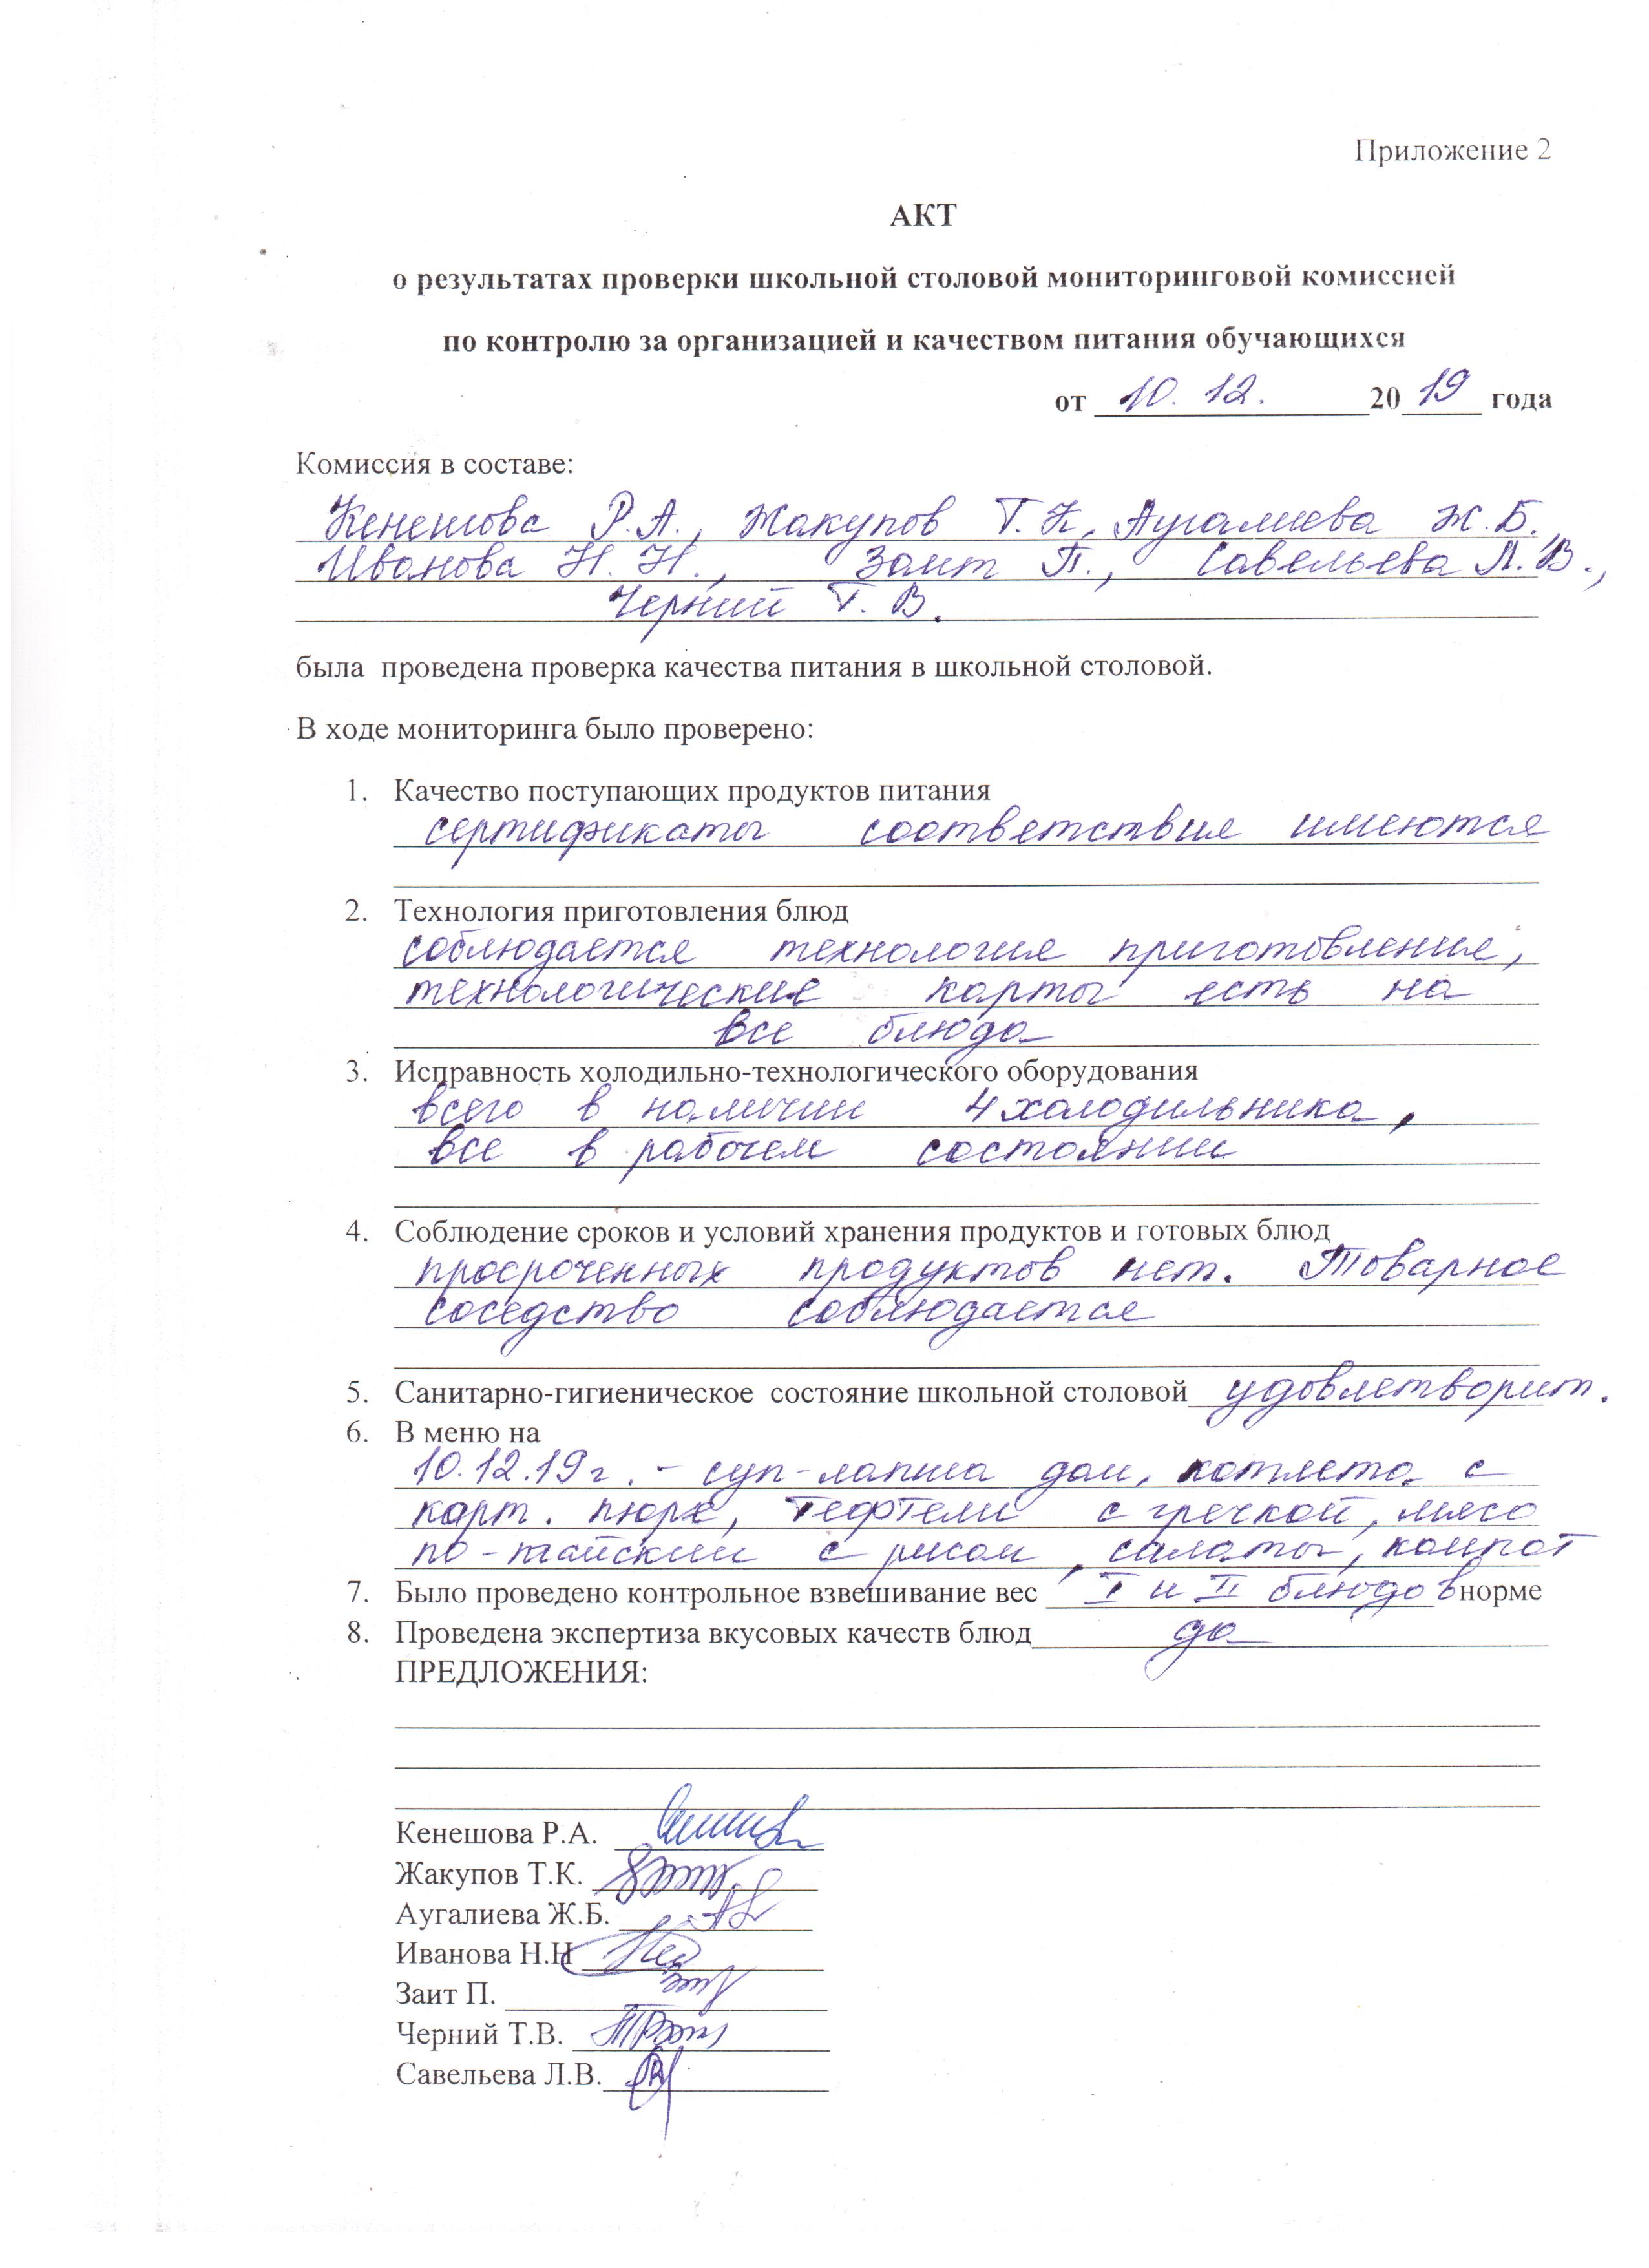 Приложение 2
АКТ
о результатах проверки школьной столовой мониторинговой комиссией
по контролю за организацией и качеством питания обучающихся
от 10. 12. 2019 года
Комиссия в составе:
Кенешова Р.А., Жакупов Т.К., Аугалиева Ж.Б.
Иванова Н.Н., Заит П., Савельева Л.В.,
Черний Т.В.
была проведена проверка качества питания в школьной столовой.
В ходе мониторинга было проверено:
1. Качество поступающих продуктов питания
сертификаты соответствия имеются
2. Технология приготовления блюд
соблюдается технология приготовления,
технологические карты есть на
все блюда
3. Исправность холодильно-технологического оборудования
всего в наличии 4 холодильника,
все в рабочем состоянии
4. Соблюдение сроков и условий хранения продуктов и готовых блюд
просроченных продуктов нет. Товарное
соседство соблюдается
5. Санитарно-гигиеническое состояние школьной столовой удовлетворит.
6. В меню на
10.12.19г. - суп-лапша дом, котлета с
карт. пюре, тефтели с гречкой, мясо
по-тайски с рисом, салаты, компот
7. Было проведено контрольное взвешивание вес I и II блюдо в норме
8. Проведена экспертиза вкусовых качеств блюд да
ПРЕДЛОЖЕНИЯ:
Кенешова Р.А.
Жакупов Т.К.
Аугалиева Ж.Б.
Иванова Н.Н
Заит П.
Черний Т.В.
Савельева Л.В.